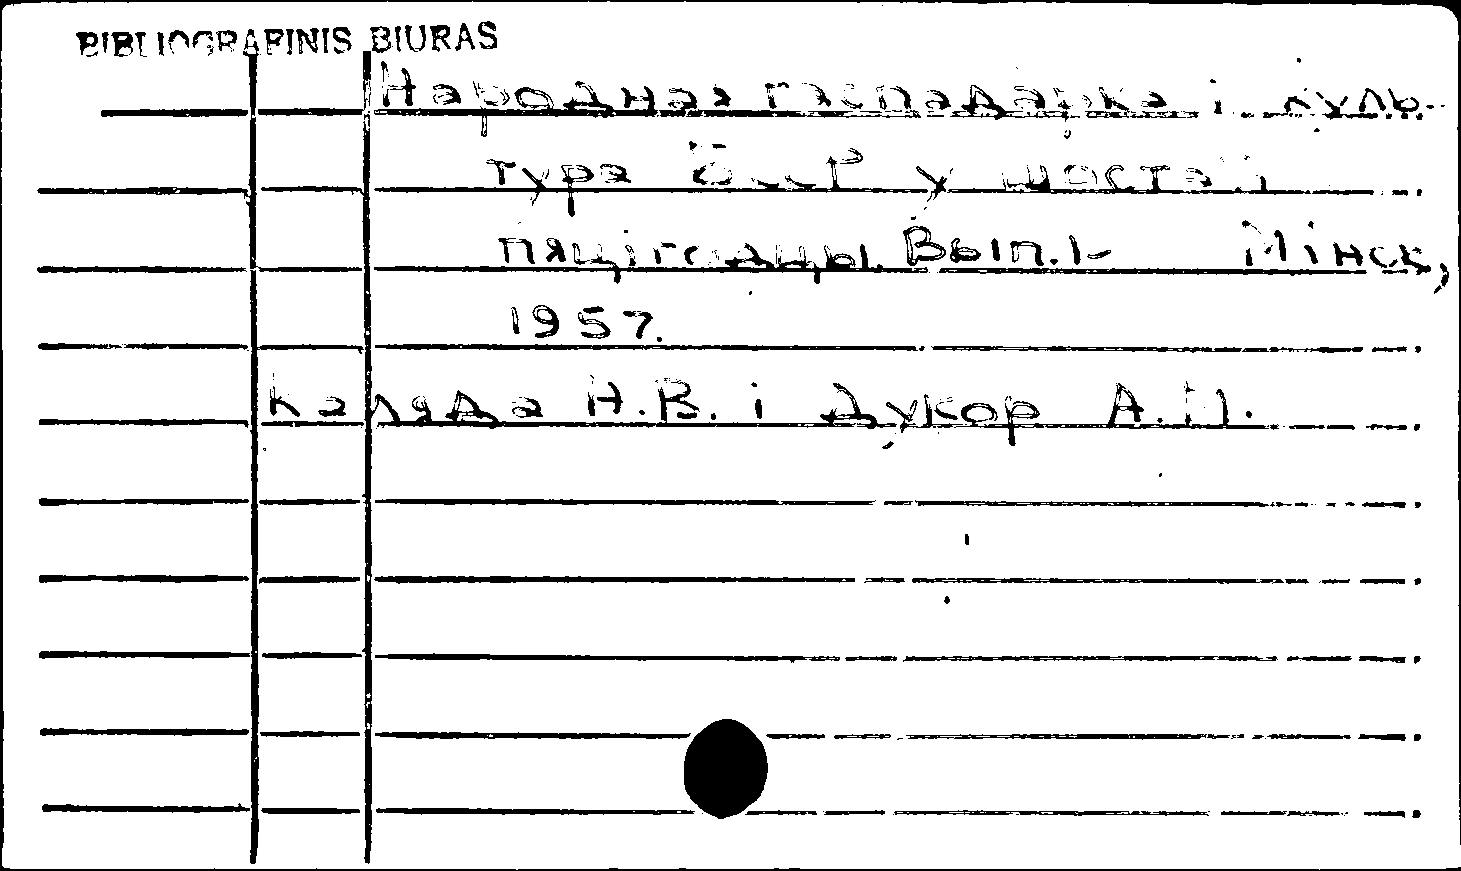 BIBLIOGRAFINIS BIURAS
Народная гаспадарка і куль-
тура БССР у шостай
пяцігодцы. Вып.1- Мінск,
1957.
Каляда Н.В. і Дукор А.П.